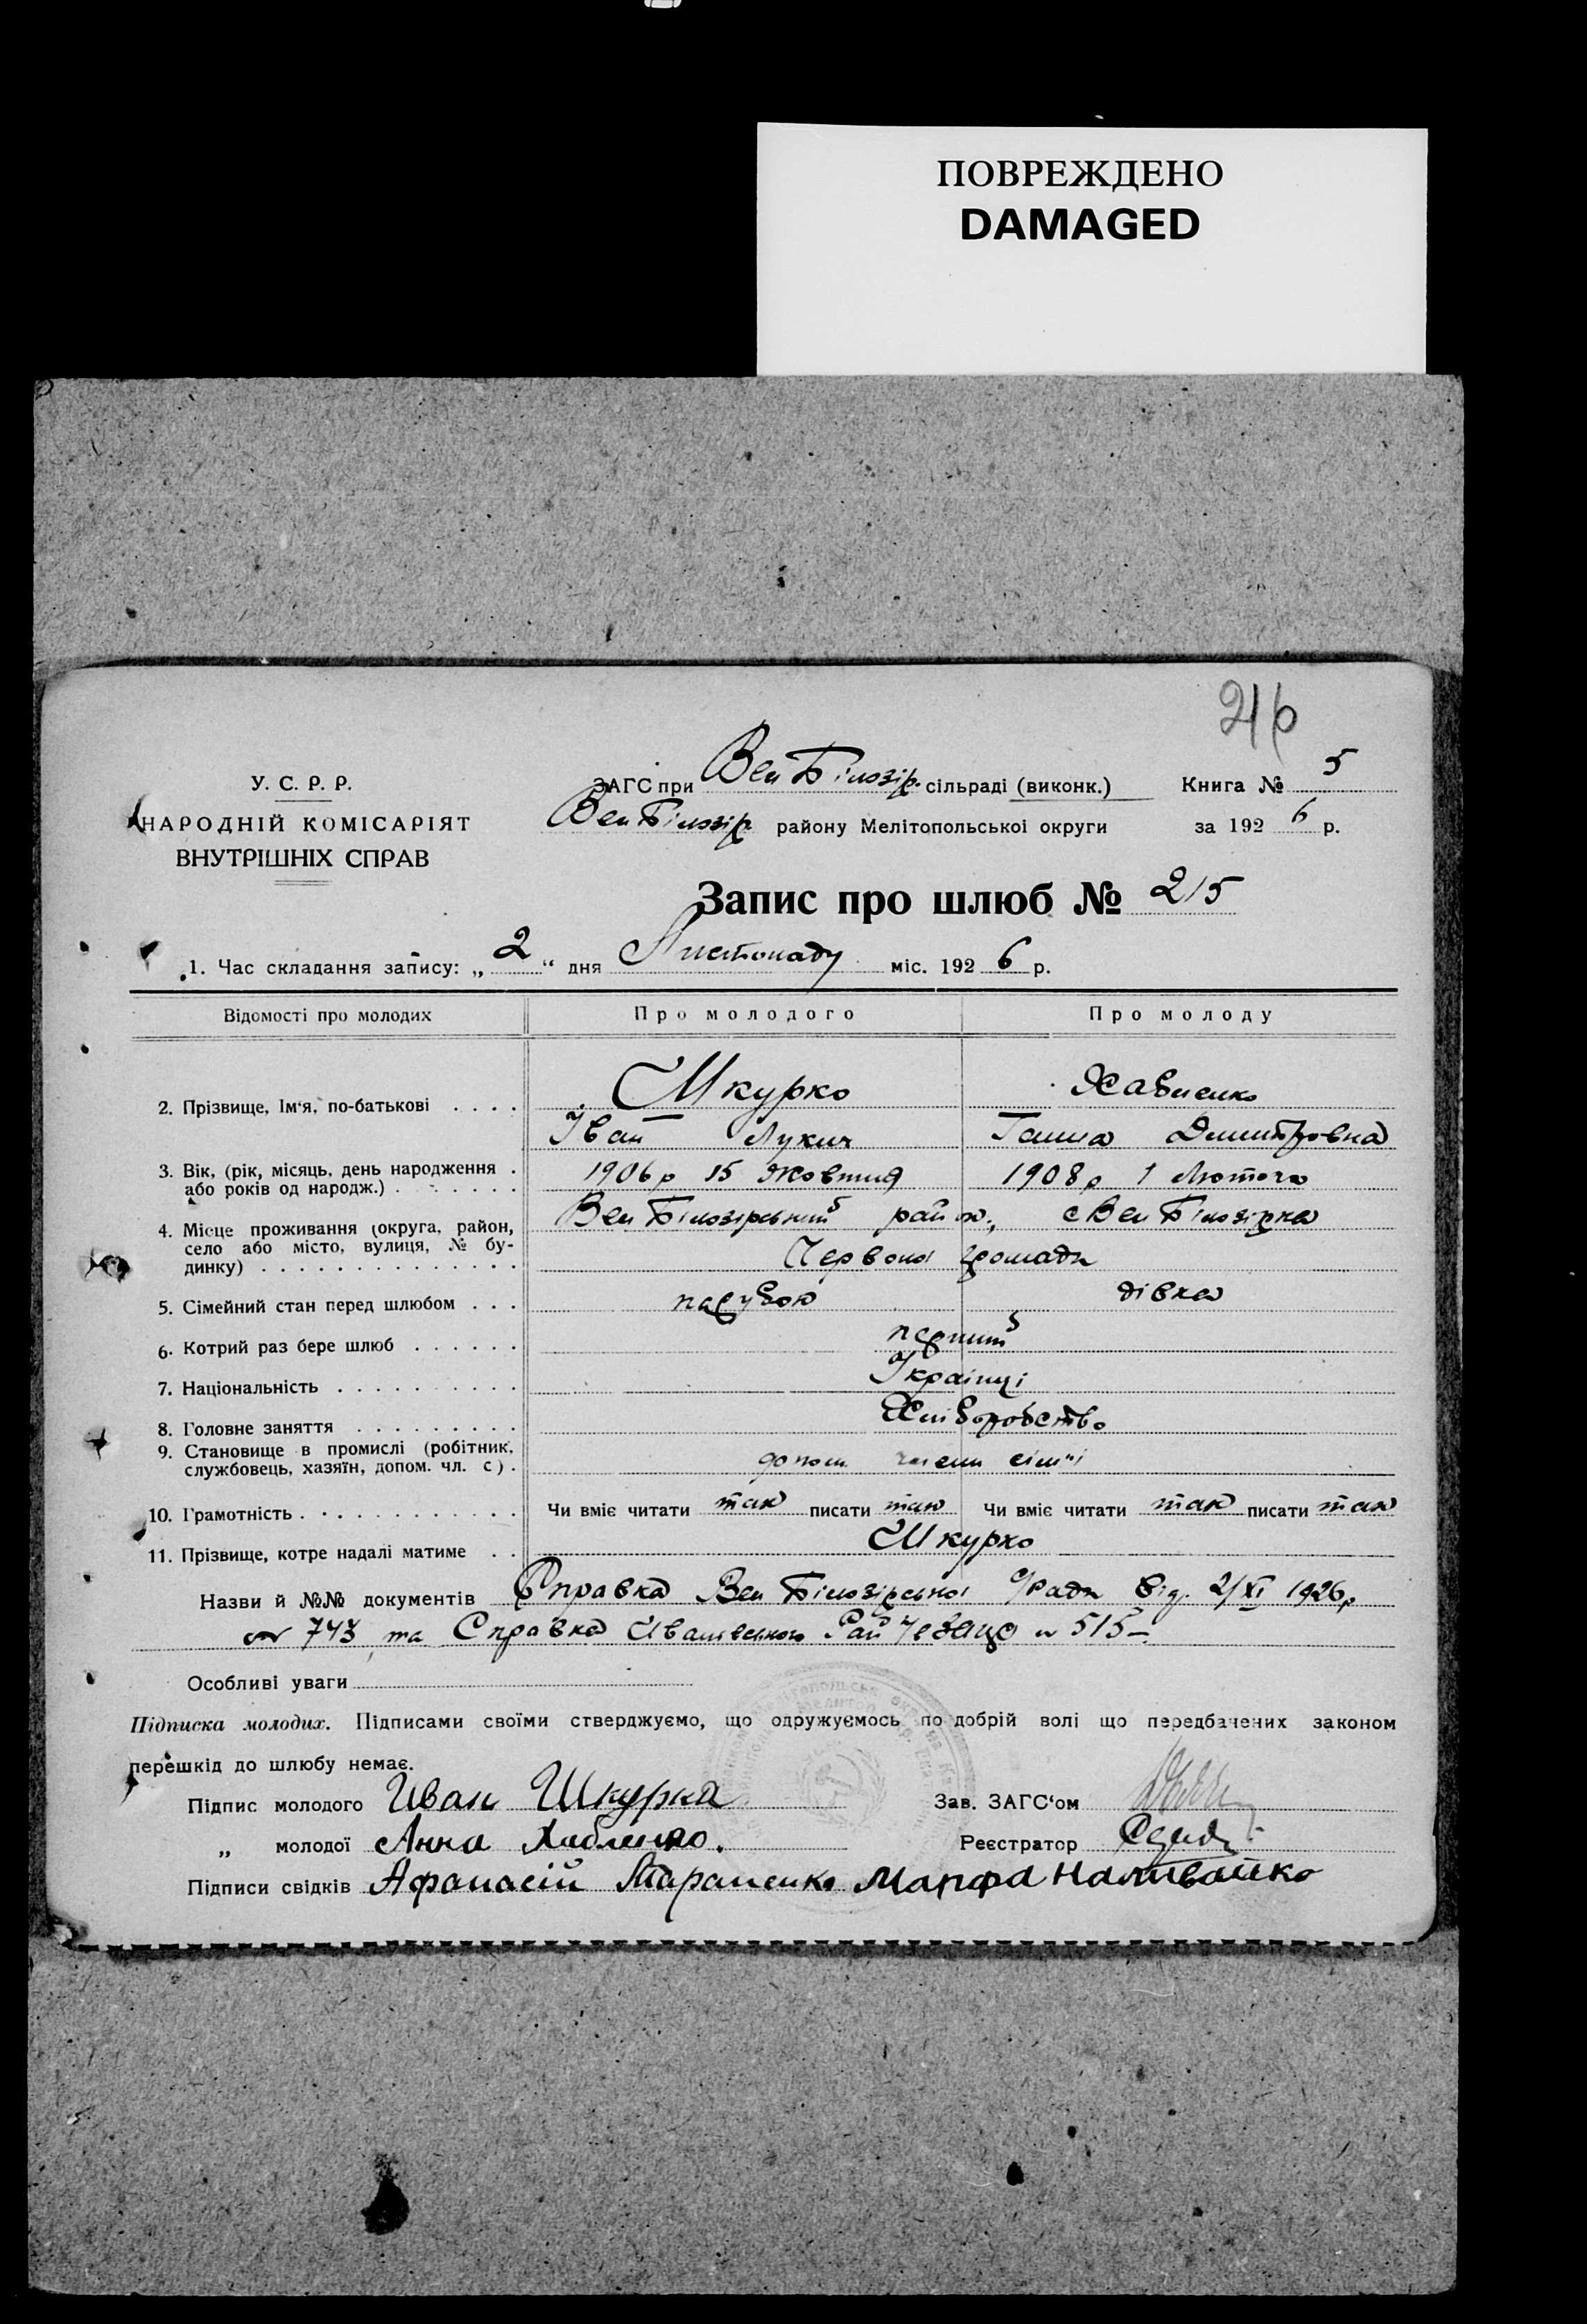 ПОВРЕЖДЕНО
DAMAGED
216
У. С. Р. Р.
НАРОДНІЙ КОМІСАРІЯТ
ВНУТРІШНІХ СПРАВ
ЗАГС при Вел Білозір. сільраді (виконк.) Книга № 5
Вел Білозір району Мелітопольської округи за 1926 р.
Запис про шлюб № 215
1. Час складання запису: „2“ дня Листопаду міс. 1926 р.
Відомості про молодих Про молодого Про молоду
2. Прізвище, Ім'я, по-батькові . . . . Шкурко Хавленко
Іван Лукич Ганна Дмитровна
3. Вік, (рік, місяць, день народження . 1906 р 15 Жовтня 1908 р 1 Лютого
або років од народж.) . . . . . . .
4. Місце проживання (округа, район, Вел Білозірський район, с Вел Білозірка
село або місто, вулиця, № бу-
динку) . . . . . . . . . . . . . . Червоної громади
5. Сімейний стан перед шлюбом . . . парубок дівка
6. Котрий раз бере шлюб . . . . . . перший
7. Національність . . . . . . . . . . Українці
8. Головне заняття . . . . . . . . . Хліборобство
9. Становище в промислі (робітник,
службовець, хазяїн, допом. чл. с) . допом. члени сім'ї
10. Грамотність . . . . . . . . . . . . Чи вміє читати так писати так Чи вміє читати так писати так
11. Прізвище, котре надалі матиме . . Шкурко
Назви й №№ документів Справка Вел Білозірської с/Ради від. 2/XI 1926 р
№ 743 та Справка 515
Особливі уваги
Підписка молодих. Підписами своїми стверджуємо, що одружуємось по добрій волі що передбачених законом
перешкід до шлюбу немає.
Підпис молодого Иван Шкурка Зав. ЗАГС'ом
„ молодої Анна Хабленко. Реєстратор
Підписи свідків Афанасій Тараненко Марфа Наливайко